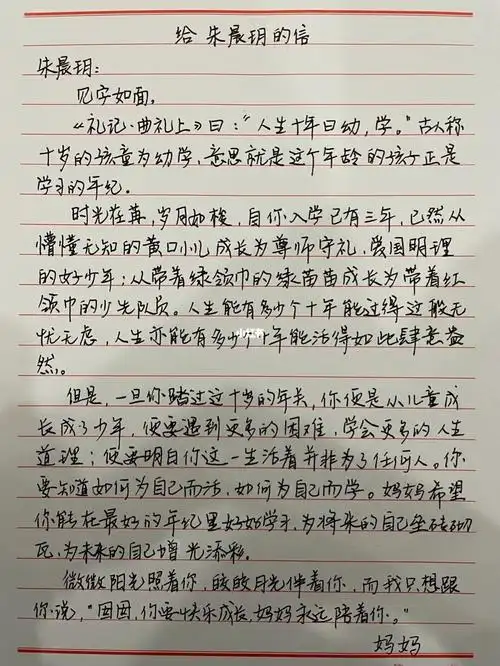 给 朱晨玥的信
朱晨玥：
见字如面。
《礼记·曲礼上》曰："人生十年曰幼，学。"古人称
十岁的孩童为幼学，意思就是这个年龄的孩子正是
学习的年纪。
时光荏苒，岁月如梭，自你入学已有三年，已然从
懵懂无知的黄口小儿成长为尊师守礼，爱国明理
的好少年；从带着绿领巾的绿苗苗成长为带着红
领巾的少先队员。人生能有多少个十年能过得这般无
忧无虑，人生亦能有多少个十年能活得如此肆意盎
然。
小红书
但是，一旦你踏过这十岁的年关，你便是从儿童成
长成了少年，便要遇到更多的困难，学会更多的人生
道理；便要明白你这一生活着并非为了任何人。你
要知道如何为自己而活，如何为自己而学。妈妈希望
你能在最好的年纪里好好学习，为将来的自己垒砖砌
瓦，为未来的自己增光添彩。
微微阳光照着你，皎皎月光伴着你，而我只想跟
你说，"囡囡，你要快乐成长，妈妈永远陪着你。"
妈妈